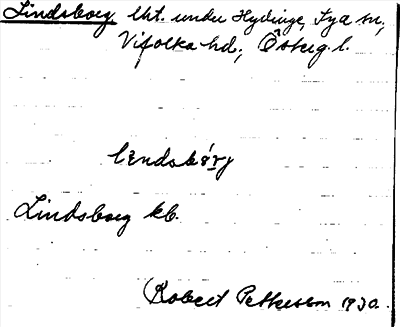 Lindsborg lht. under Hydinge, Fya sn,
Vifolka hd., Österg. l.
lendsbórj
Lindsborg kb.
Robert Petterson 1930.